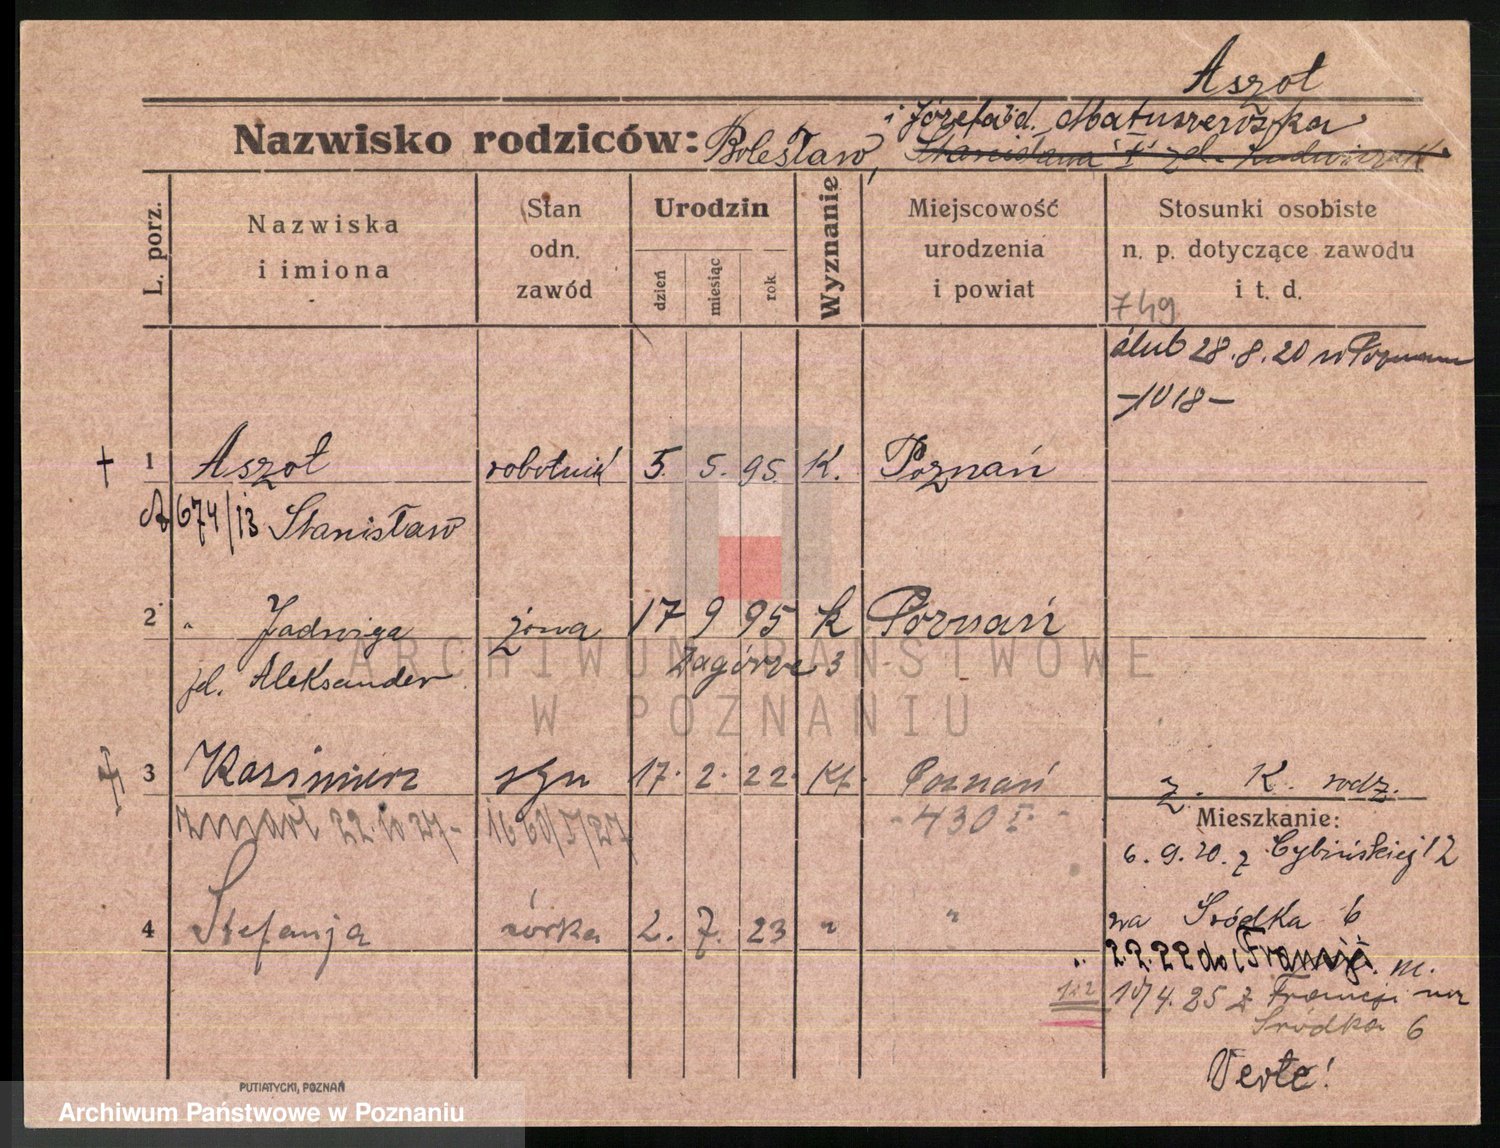 Aszoł
Nazwisko rodziców: Bolesław, i Józefa zd. Matuszewska
Stanisława zd.
L. porz.
Nazwiska i imiona
Stan odn. zawód
Urodzin
dzień
miesiąc
rok
Wyznanie
Miejscowość urodzenia i powiat
Stosunki osobiste n. p. dotyczące zawodu i t. d.
749
ślub 28.8.20 w Poznaniu
-1018-
1 Aszoł robotnik 5. 5. 95. K. Poznań
674/13 Stanisław
2 " Jadwiga żona 17 9 95 k Poznań
Zagórze 3
Aleksander
3 Kazimierz syn 17. 2. 22. Kt. Poznań
z. K. rodz.
zmarł 22.10 27- -430 I-
Mieszkanie:
6. 9. 20. z Cybińskiej 12
4 Stefanja córka 2. 7. 23 " "
na Śródka 6
2.2.22 do Francji. m.
122 10/4.25 z Francji na
Śródka 6
Verte!
PUTIATYCKI, POZNAŃ
ARCHIWUM PAŃSTWOWE
W POZNANIU
Archiwum Państwowe w Poznaniu